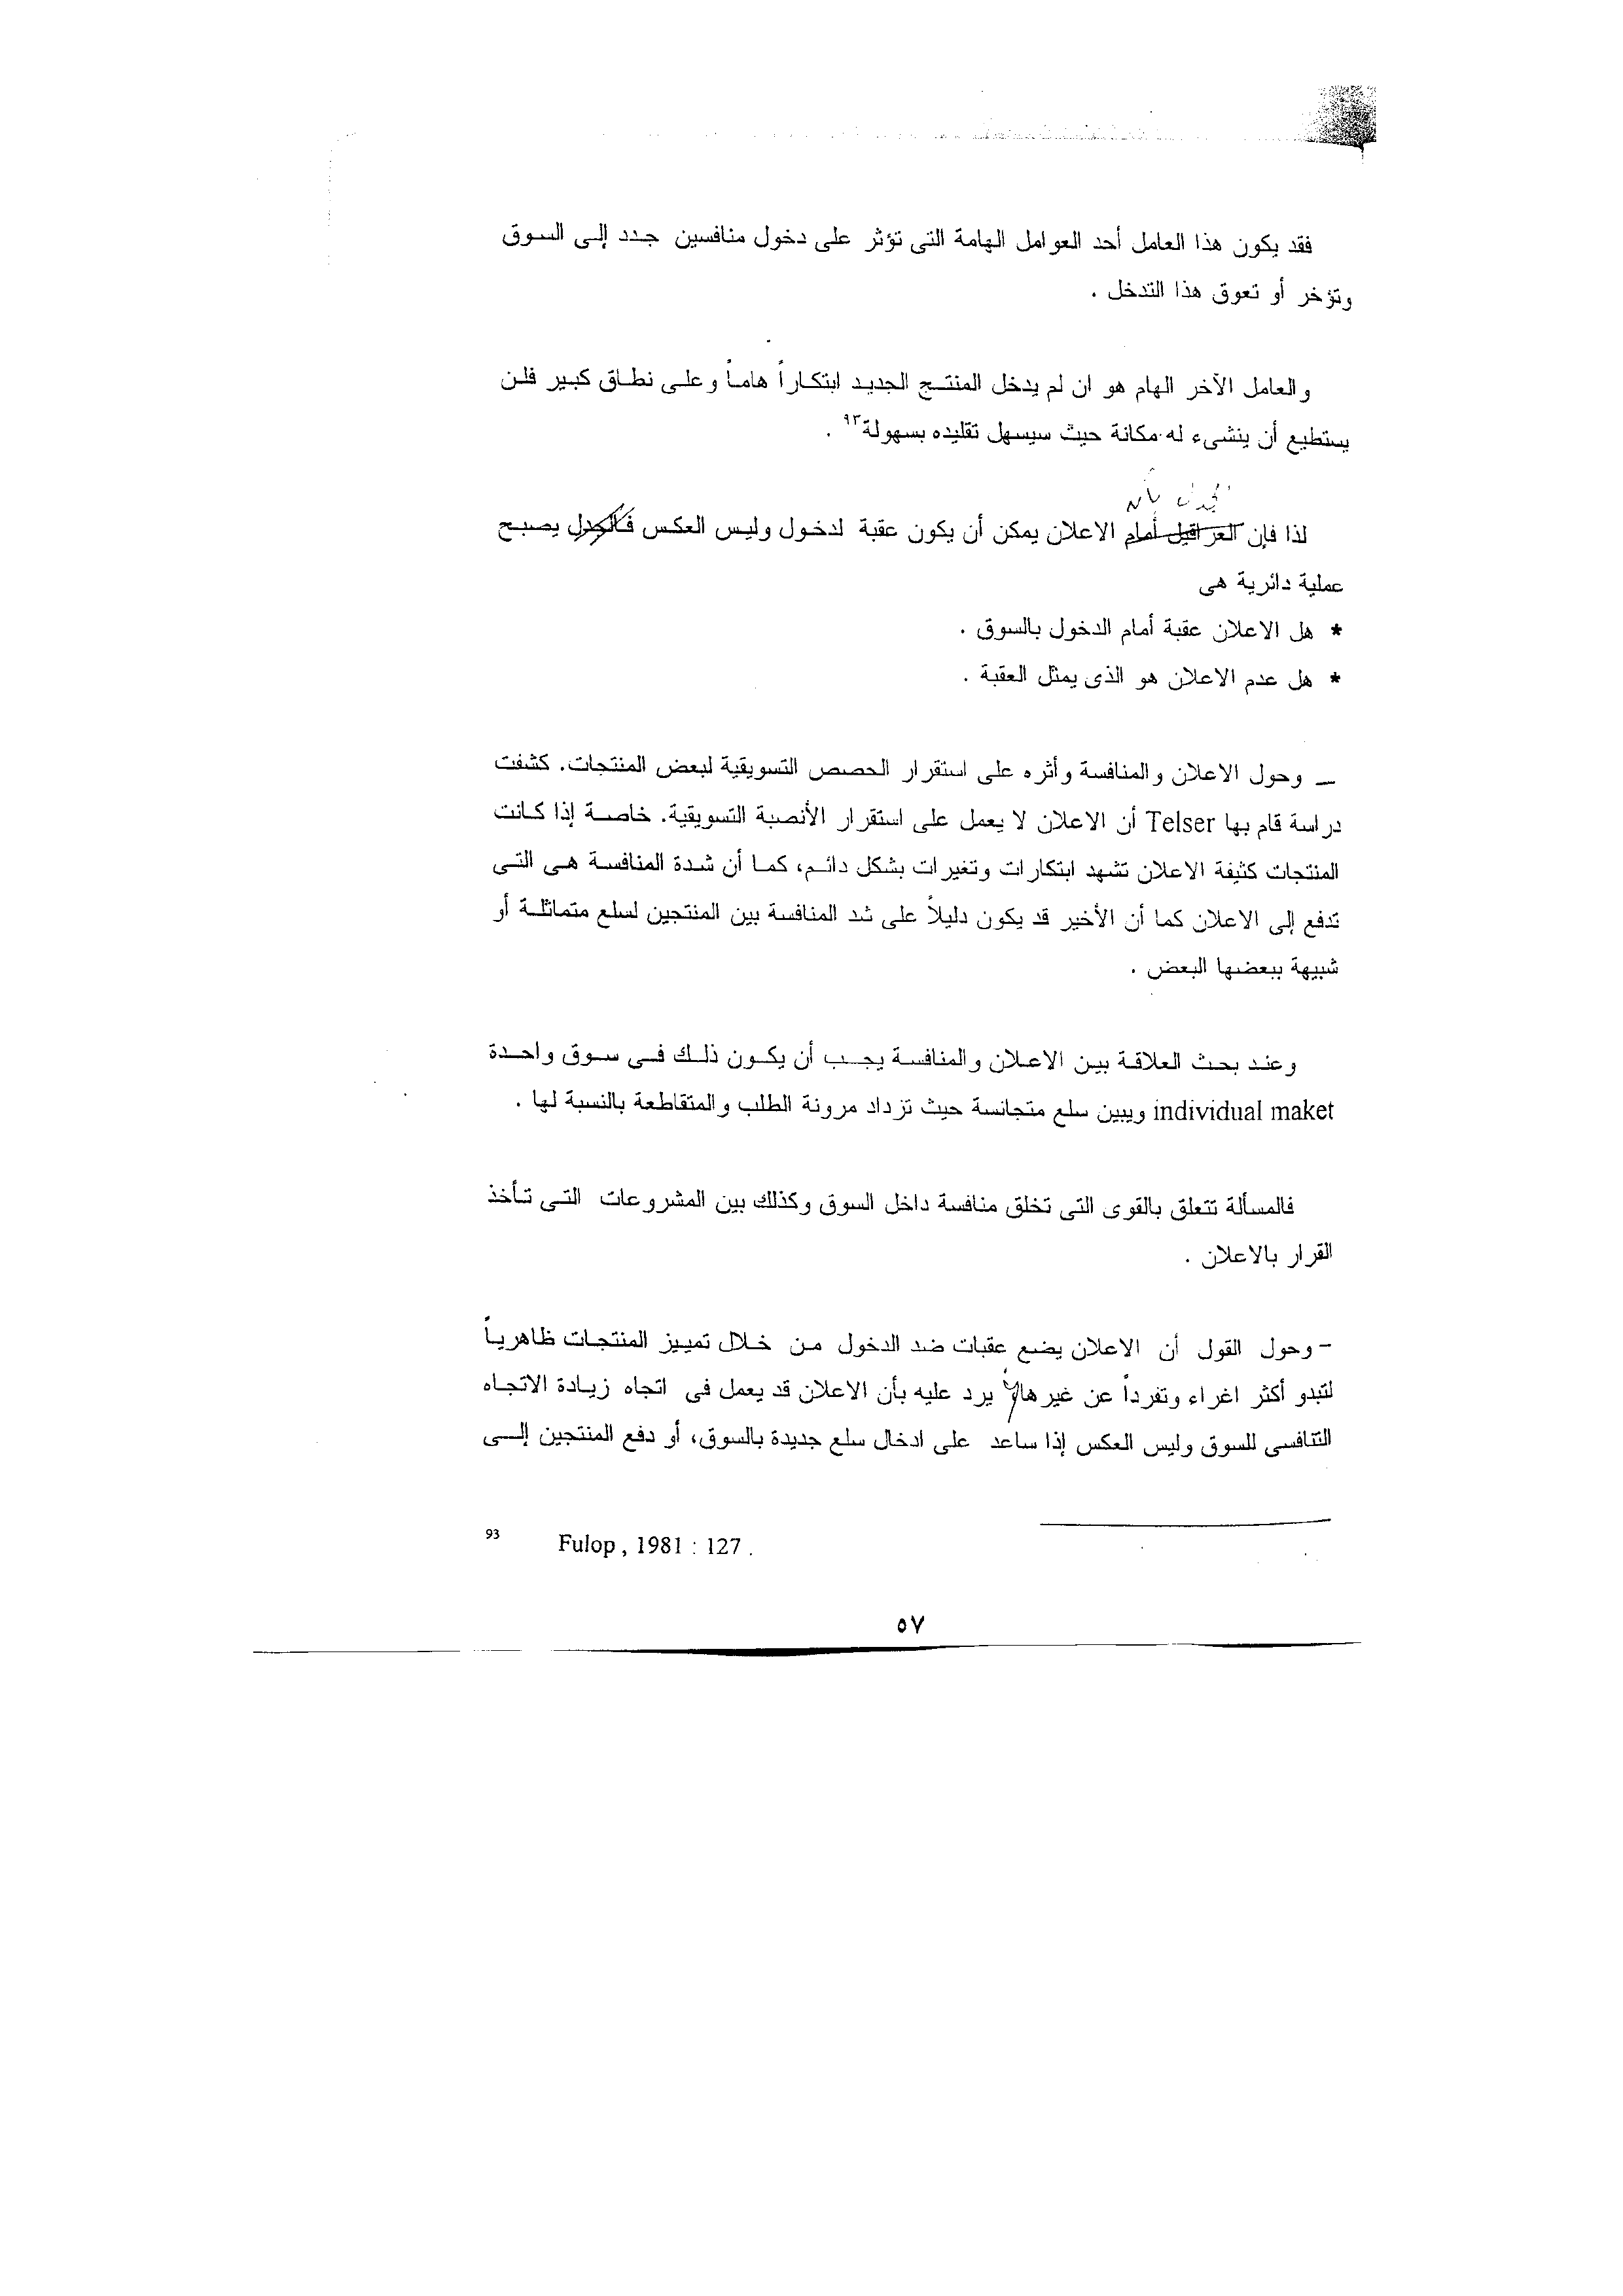 فقد يكون هذا العامل أحد العوامل الهامة التى تؤثر على دخول منافسين جدد إلى السوق
وتؤخر أو تعوق هذا التدخل .
والعامل الآخر الهام هو ان لم يدخل المنتج الجديد ابتكاراً هاماً وعلى نطاق كبير فلن
يستطيع أن ينشىء له مكانة حيث سيسهل تقليده بسهولة٩٣ .
بأن
لذا فإن العراقيل أمام الاعلان يمكن أن يكون عقبة لدخول وليس العكس فالجدل يصبح
عملية دائرية هى
* هل الاعلان عقبة أمام الدخول بالسوق .
* هل عدم الاعلان هو الذى يمثل العقبة .
_ وحول الاعلان والمنافسة وأثره على استقرار الحصص التسويقية لبعض المنتجات. كشفت
دراسة قام بها Telser أن الاعلان لا يعمل على استقرار الأنصبة التسويقية. خاصة إذا كانت
المنتجات كثيفة الاعلان تشهد ابتكارات وتغيرات بشكل دائم، كما أن شدة المنافسة هى التى
تدفع إلى الاعلان كما أن الأخير قد يكون دليلاً على شد المنافسة بين المنتجين لسلع متماثلة أو
شبيهة ببعضها البعض .
وعند بحث العلاقة بين الاعلان والمنافسة يجب أن يكون ذلك فى سوق واحدة
individual maket ويبين سلع متجانسة حيث تزداد مرونة الطلب والمتقاطعة بالنسبة لها .
فالمسألة تتعلق بالقوى التى تخلق منافسة داخل السوق وكذلك بين المشروعات التى تأخذ
القرار بالاعلان .
- وحول القول أن الاعلان يضع عقبات ضد الدخول من خلال تمييز المنتجات ظاهرياً
لتبدو أكثر اغراء وتفرداً عن غيرها يرد عليه بأن الاعلان قد يعمل فى اتجاه زيادة الاتجاه
التنافسى للسوق وليس العكس إذا ساعد على ادخال سلع جديدة بالسوق، أو دفع المنتجين إلى
93 Fulop , 1981 : 127 .
٥٧